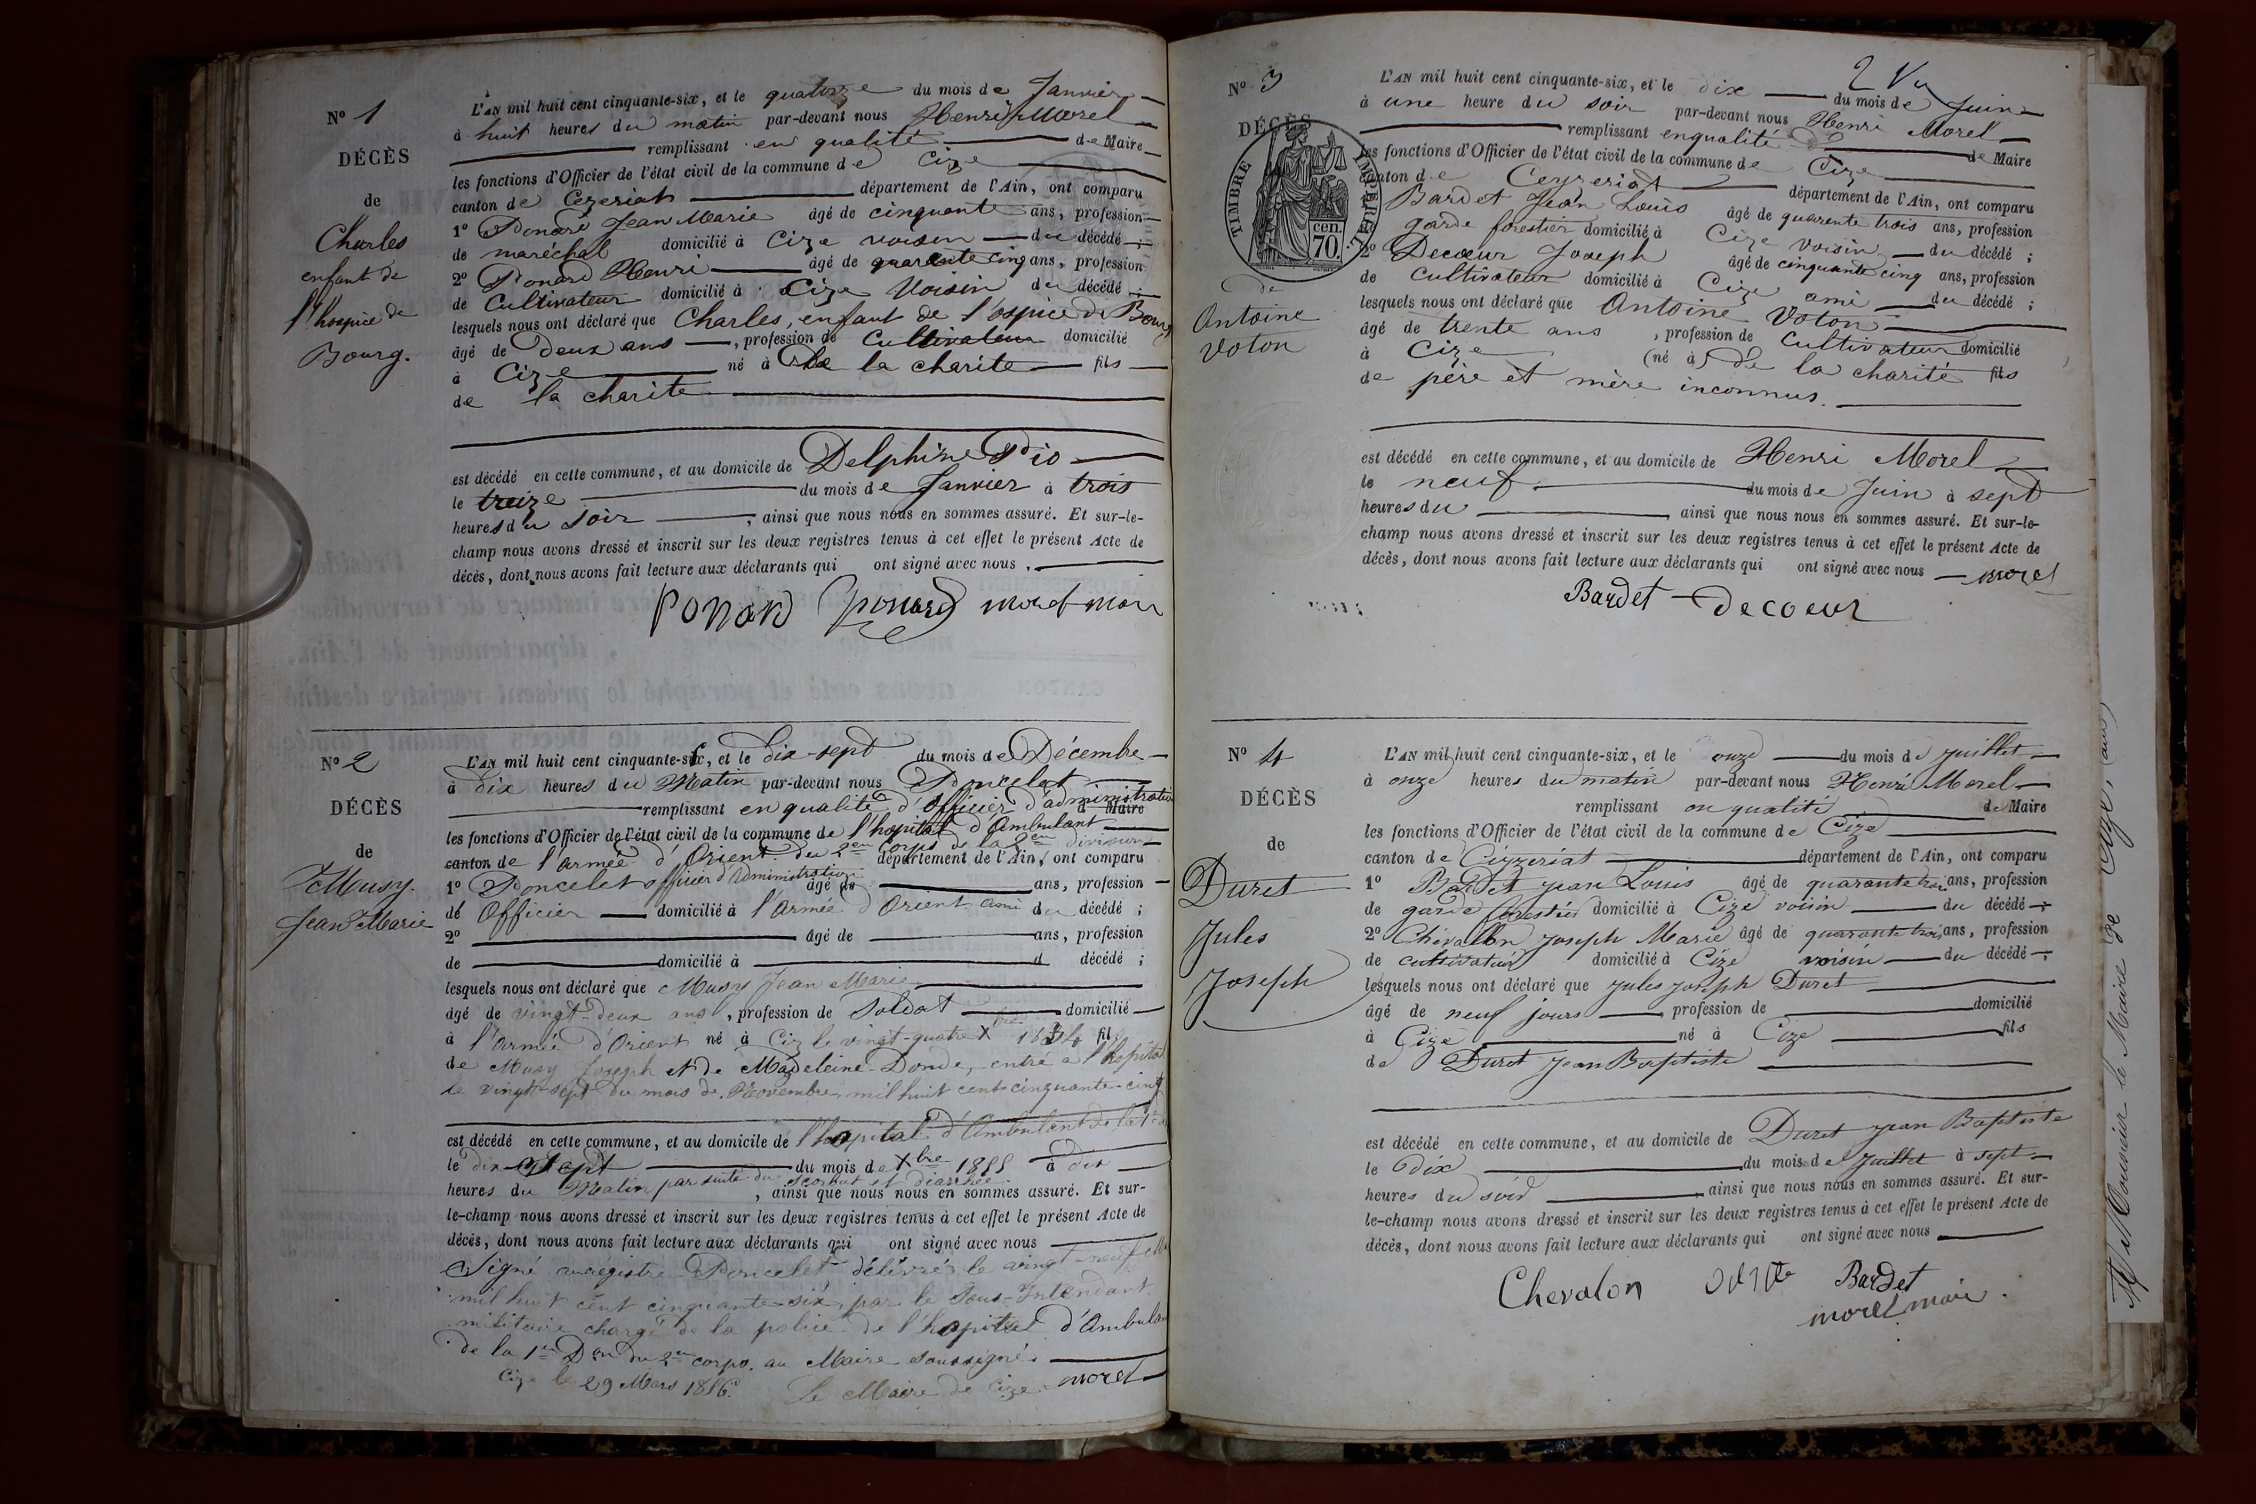 N° 1
DÉCÈS
de
Charles
enfant de
l'hospice de
Bourg.
L'AN mil huit cent cinquante-six, et le quatorze du mois de Janvier
à huit heures du matin par-devant nous Henri Morel
remplissant en qualité de Maire
les fonctions d'Officier de l'état civil de la commune de Cize
canton de Cezeriat département de l'Ain, ont comparu
1° Ponard Jean Marie âgé de cinquante ans, profession
de maréchal domicilié à Cize voisin du décédé ;
2° Ponard Henri âgé de quarante cinq ans, profession
de Cultivateur domicilié à Cize Voisin du décédé ;
lesquels nous ont déclaré que Charles, enfant de l'ospice de Bourg
âgé de deux ans , profession de Cultivateur domicilié
à Cize né à de la charite fils
de la charite
est décédé en cette commune, et au domicile de Delphine Pio
le treize du mois de Janvier à trois
heures du Soir , ainsi que nous nous en sommes assuré. Et sur-le-
champ nous avons dressé et inscrit sur les deux registres tenus à cet effet le présent Acte de
décès, dont nous avons fait lecture aux déclarants qui ont signé avec nous .
Ponard Ponard morel maire
N° 2
DÉCÈS
de
Musy.
Jean Marie
L'AN mil huit cent cinquante-six, et le dix-sept du mois de Décembre
à dix heures du Matin par-devant nous Poncelet
remplissant en qualité d'officier d'administration d Maire
les fonctions d'Officier de l'état civil de la commune de l'hopital d'Ambulant
canton de l'armée d'Orient du 2em Corps de la 2em division département de l'Ain, ont comparu
1° Poncelet officier d'Administration âgé de ans, profession
de Officier domicilié à l'Armée d'Orient ami du décédé ;
2° âgé de ans, profession
de domicilié à d décédé ;
lesquels nous ont déclaré que Musy Jean Marie
âgé de vingt-deux ans , profession de Soldat domicilié
à l'armée d'Orient né à Ciz le vingt-quatre Xbre fils
de Musy Joseph et de Magdeleine Donde, entré à l'hopital
le vingt-sept du mois de Novembre mil huit cent cinquante-cinq
est décédé en cette commune, et au domicile de l'hopital d'Ambulant de la 1re
le dix-sept du mois de Xbre 1855 à dix
heures du Matin par suite du scorbut et diarrhée , ainsi que nous nous en sommes assuré. Et sur-
le-champ nous avons dressé et inscrit sur les deux registres tenus à cet effet le présent Acte de
décès, dont nous avons fait lecture aux déclarants qui ont signé avec nous
Signé au registre Poncelet délivré le vingt-neuf
mil huit cent cinquante-six, par le Sous-Intendant
militaire chargé de la police de l'hopital d'Ambulan
de la 1re Don du 2em corps. au Maire soussigné
Cize le 29 Mars 1856. Le Maire de Cize morel
2 Vu
N° 3
DÉCÈS
TIMBRE IMPÉRIAL.
70. cen.
de
Antoine
Voton
L'AN mil huit cent cinquante-six, et le dix du mois de Juin
à une heure du soir par-devant nous Henri Morel
remplissant en qualité de Maire
les fonctions d'Officier de l'état civil de la commune de Cize
canton de Ceyzeriat département de l'Ain, ont comparu
Bardet Jean Louis âgé de quarente trois ans, profession
garde forestier domicilié à Cize voisin du décédé ;
2° Decœur Joseph âgé de cinquante cinq ans, profession
de cultivateur domicilié à Cize ami du décédé ;
lesquels nous ont déclaré que Antoine Voton
âgé de trente ans , profession de Cultivateur domicilié
à Cize (né à) de la charité fils
de père et mère inconnus.
est décédé en cette commune, et au domicile de Henri Morel
le neuf du mois de Juin à sept
heures du ainsi que nous nous en sommes assuré. Et sur-le-
champ nous avons dressé et inscrit sur les deux registres tenus à cet effet le présent Acte de
décès, dont nous avons fait lecture aux déclarants qui ont signé avec nous morel
Bardet Decoeur
N° 4
DÉCÈS
de
Duret
Jules
Joseph
L'AN mil huit cent cinquante-six, et le onze du mois de juillet
à onze heures du matin par-devant nous Henri Morel
remplissant en qualité de Maire
les fonctions d'Officier de l'état civil de la commune de Cize
canton de Ceyzeriat département de l'Ain, ont comparu
1° Bardet jean Louis âgé de quarante trois ans, profession
de garde forestier domicilié à Cize voisin du décédé ;
2° Chevallon joseph Marie âgé de quarante trois ans, profession
de cultivateur domicilié à Cize voisin du décédé ;
lesquels nous ont déclaré que jules joseph Duret
âgé de neuf jours , profession de domicilié
à Cize né à Cize fils
de Duret jean Baptiste
est décédé en cette commune, et au domicile de Duret jean Baptiste
le dix du mois de juillet à sept
heures du soir ainsi que nous nous en sommes assuré. Et sur-
le-champ nous avons dressé et inscrit sur les deux registres tenus à cet effet le présent Acte de
décès, dont nous avons fait lecture aux déclarants qui ont signé avec nous
Chevalon Bardet
morel maire
Monsieur le Maire de Cize, (ain)